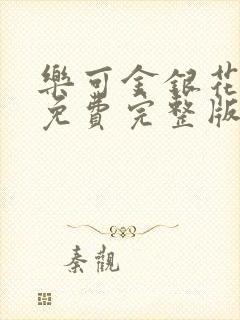 樂可金銀花
免費完整版
秦觀